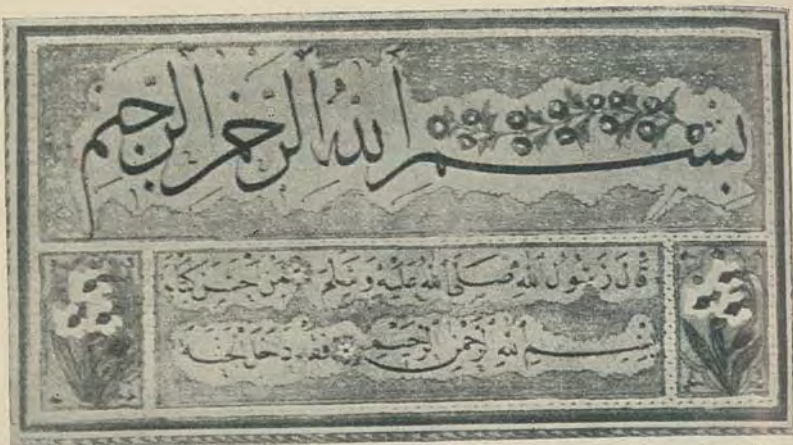 بسم الله الرحمن الرحيم
قال رسول الله صلى الله عليه وسلم من حسن كتابة
بسم الله الرحمن الرحيم فقد دخل الجنة